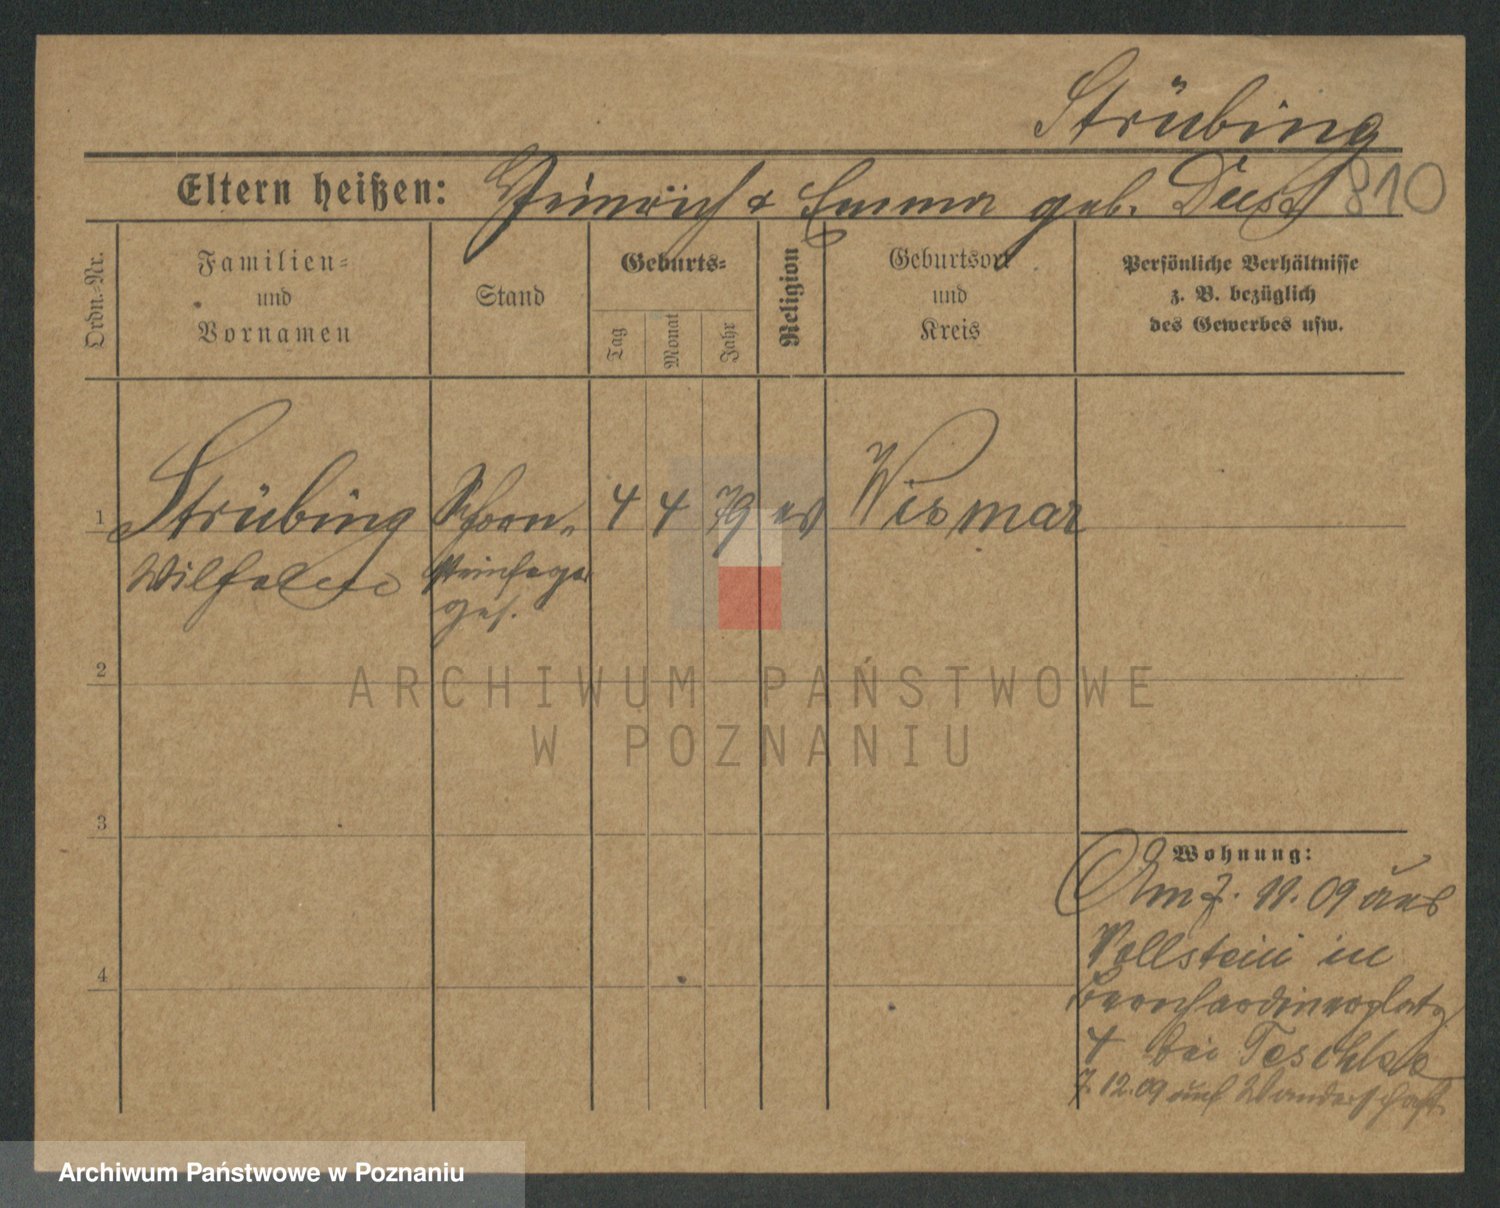 Strübing
Eltern heißen: Heinrich & Emma geb. 810
Ordn.-Nr.
Familien-
und
Vornamen
Stand
Geburts-
Tag
Monat
Jahr
Religion
Geburtsort
und
Kreis
Persönliche Verhältnisse
z. B. bezüglich
des Gewerbes usw.
1 Strübing Schorn- 4 4 79 ev Wismar
Wilhelm steinfeger
ges.
2
3
4
Wohnung:
Am 7. 11. 09 aus
Wollstein in
Bernhardinerplatz
4 bei Teschke
7.12.09 auf Wanderschaft
ARCHIWUM PAŃSTWOWE
W POZNANIU
Archiwum Państwowe w Poznaniu